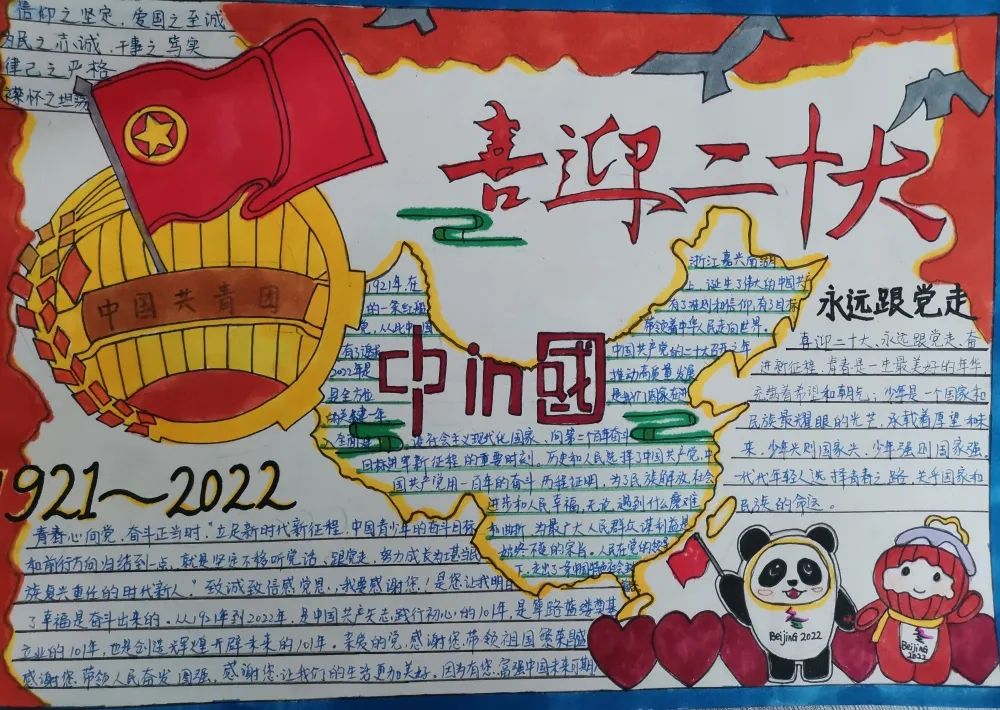 信仰之坚定,爱国之至诚
为民之赤诚,干事之笃实
律己之严格
襟怀之坦荡
喜迎二十大
中国共青团
1921年,在
的一条红船
浙江嘉兴南湖
上,诞生了伟大的中国共
有了准则和信仰,有了目标
带领着中华人民走向世界。
有了
2022年是
中国共产党的二十大召开之年
推动高质量发展
是我们国家
中in國
永远跟党走
喜迎二十大、永远跟党走、奋
进新征程,青春是一生最美好的年华
充满着希望和朝气;少年是一个国家和
民族最耀眼的光芒,承载着厚望和未
来,少年兴则国家兴,少年强则国家强。
一代代年轻人选择青春之路,关乎国家和
民族的命运。
社会主义现代化国家、向第二个百年奋斗
目标进军新征程的重要时刻。历史和人民选择了中国共产党,中
国共产党用一百年的奋斗历程证明,为了民族解放社会
进步和人民幸福,无论遇到什么磨难
和曲折,为最广大人民群众谋利益是
始终不变的宗旨。人民在党的
下,走出了
1921~2022
青春心向党,奋斗正当时,"立足新时代新征程,中国青少年的奋斗目标
和前行方向归结到一点,就是坚定不移听党话、跟党走,努力成长为堪当民
族复兴重任的时代新人。"致诚致信感党恩,我要感谢您!是您让我明白
了幸福是奋斗出来的,从1921年到2022年,是中国共产党矢志践行初心的101年,是筚路蓝缕奠基
立业的101年,也是创造辉煌开辟未来的101年。亲爱的党,感谢您,带领祖国繁荣昌盛
感谢您,带领人民奋发图强,感谢您,让我们的生活更加美好,因为有您,富强中国未来可期
BeijiNG 2022
BeijiNG
2022